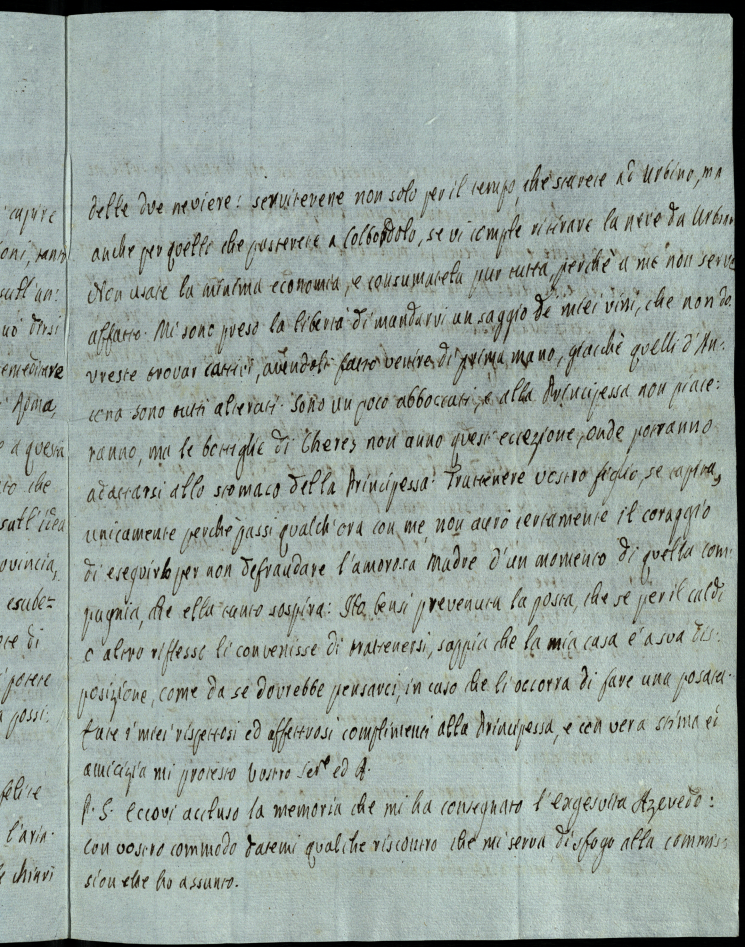 capire
oni, tant
sull'un:
uò dirsi
rimediare
Roma,
o a questa
to che
sull'idea
ovincia,
esube=
ore di
potere
a possi:
felice
l'aria.
chiavi
delle due neviere: servitevene non solo per il tempo, che starete ad Urbino, ma
anche per quello che passerete a Colbordolo, se vi compie ritirare la neve da Urbino
Non usate la minima economia, e consumatela pur tutta, perchè a me non serve
affatto. Mi sono preso la libertà di mandarvi un saggio de' miei vini, che non do:
vreste trovar cattivi, avendoli fatto venire di prima mano, giacchè quelli d'An:
cona sono tutti alterati. Sono un poco abboccati, e alla Principessa non piace:
ranno, ma le bottiglie di Cherez non anno quest'eccezione, onde potranno
adattarsi allo stomaco della Principessa. Trattenere vostro figlio, se capita,
unicamente perchè passi qualch'ora con me, non avrò certamente il coraggio
di eseguirlo per non defraudare l'amorosa Madre d'un momento di quella com:
pagnia, che ella tanto sospira: Ho bensì prevenuta la posta, che se per il caldo
o altro riflesso li convenisse di trattenersi, sappia che la mia casa è a sua dis:
posizione, come da se dovrebbe pensarci, in caso che li occorra di fare una posata.
Fate i miei rispettosi ed affettuosi complimenti alla Principessa, e con vera stima ed
amicizia mi protesto vostro Serᵉ ed A.
P. S. Eccovi accluso la memoria che mi ha consegnato l'exgesuita Azevedo:
con vostro commodo datemi qualche riscontro che mi serva di sfogo alla commis:
sion che ho assunto.